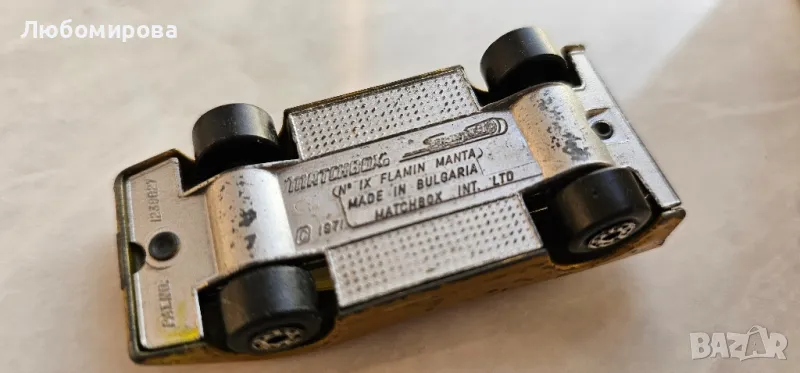 Любомирова
MATCHBOX
Superfast
(Nº IX FLAMIN MANTA)
MADE IN BULGARIA
MATCHBOX INT. LTD
© 1971
PAT.NO. 1238927
BAZAR